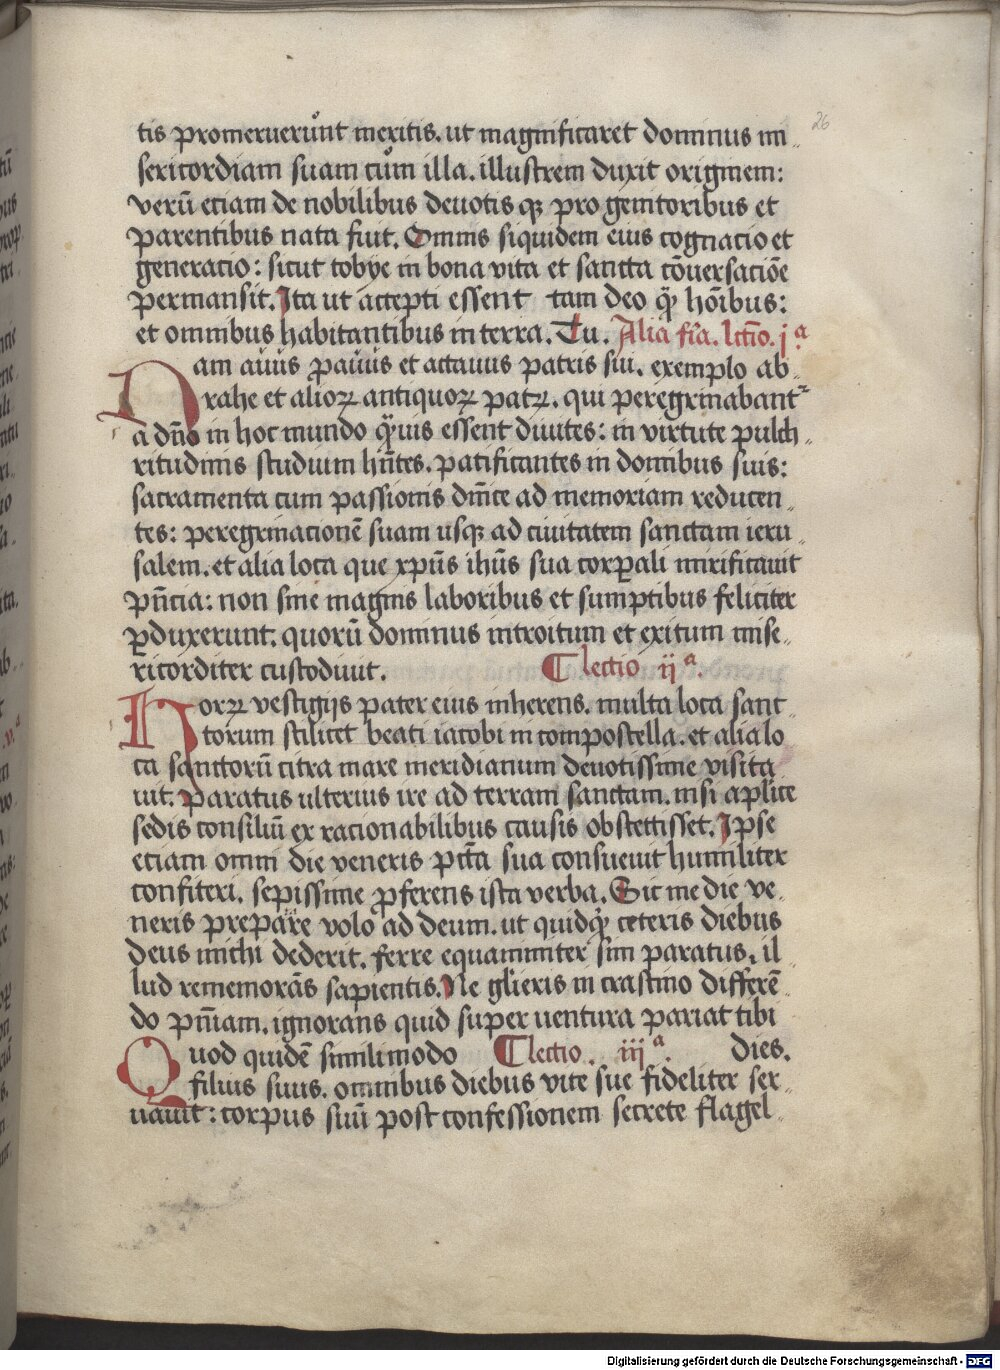 26
tis promeruerunt meritis. ut magnificaret dominus mi
sericordiam suam cum illa. illustrem duxit originem:
verū etiam de nobilibus deuotis qꝫ pro genitoribus et
parentibus nata fuit. Omnis siquidem eius cognacio et
generacio: sicut tobye in bona vita et sancta cōuersaciōe
permansit. Ita ut accepti essent tam deo q̄ȝ hōibus:
et omnibus habitantibus in terra. Tu. Alia fr̄a. lctio. jᵃ
Nam auus ꝓauus et attauus patris sui. exemplo ab
rahe et alioꝝ antiquoꝝ patꝝ. qui peregrinabant᷑
a dn̄o in hoc mundo q̄ȝuis essent diuites: in virtute pulch
ritudinis studium hn̄tes. pacificantes in domibus suis:
sacramenta cum passionis dn̄ice ad memoriam reducen
tes: peregrinacionē suam usqꝫ ad ciuitatem sanctam ieru
salem. et alia loca que xpūs ihūs sua corꝑali mirificauit
pn̄cia: non sine magnis laboribus et sumptibus feliciter
ꝑduxerunt: quorū dominus introitum et exitum mise
ricorditer custodiuit. lectio ijᵃ
Horꝝ vestigijs pater eius inherens. multa loca sanc
torum scilicet beati iacobi in compostella. et alia lo
ca sanctorū citra mare meridianum deuotissime visita
uit: paratus ulterius ire ad terram sanctam. nisi aplice
sedis consiliū ex racionabilibus causis obstetisset. Ipse
etiam omni die veneris pctā sua consueuit humiliter
confiteri. sepissime ꝓferens ista verba. Sic me die ve
neris preparare volo ad deum. ut quidq̄ȝ ceteris diebus
deus michi dederit. ferre equanimiter sim paratus. il
lud rememorās sapientis. Ne glieris in crastino differē
do pn̄iam. ignorans quid super uentura pariat tibi
Quod quidē simili modo lectio. iijᵃ. dies.
filius suus. omnibus diebus vite sue fideliter ser
uauit: corpus suū post confessionem secrete flagel
Digitalisierung gefördert durch die Deutsche Forschungsgemeinschaft - DFG